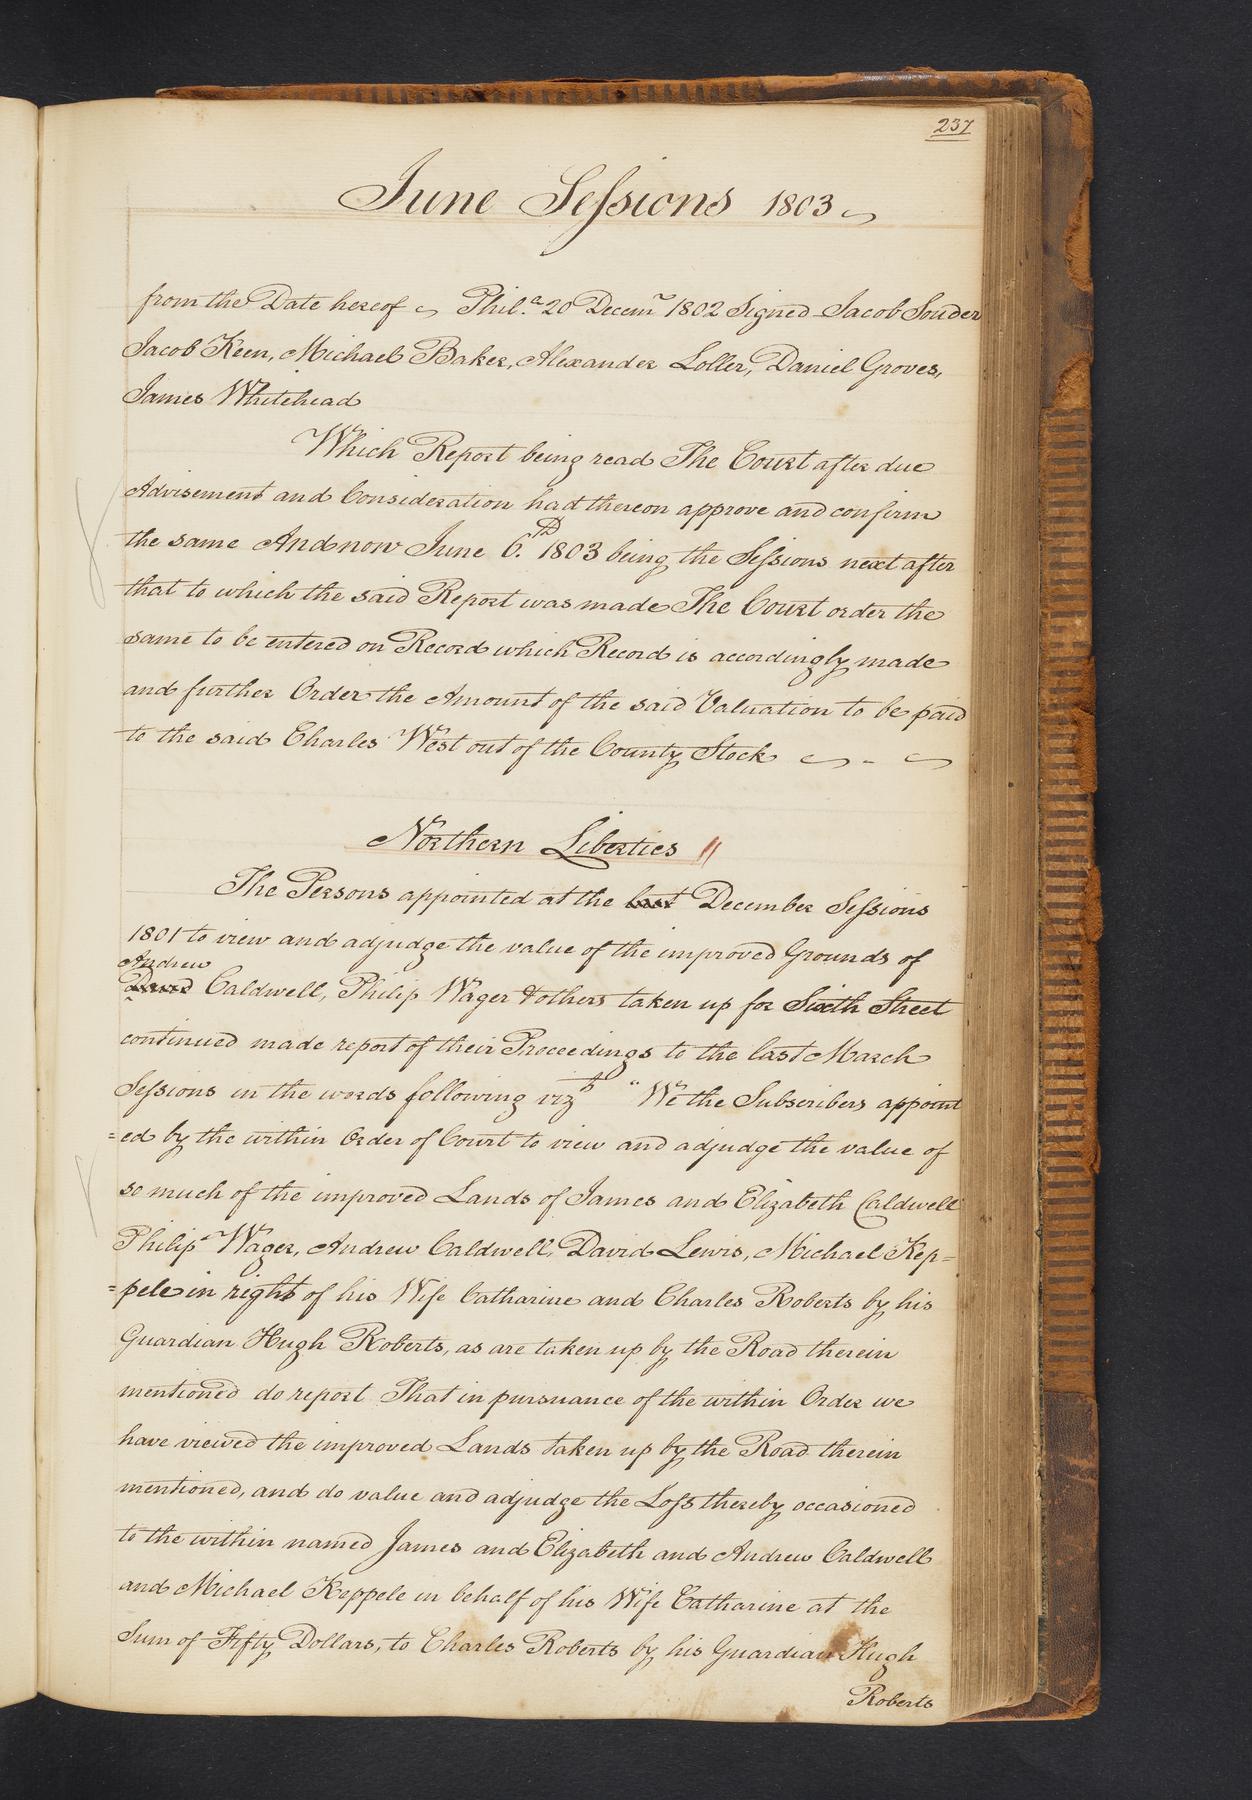 237
June Seſsions 1803
from the Date hereof Phil.a 20 Decemr 1802 Signed Jacob Souder
Jacob Keen, Michael Baker, Alexander Loller, Daniel Groves,
James Whitehead
Which Report being read The Court after due
Advisement and Consideration had thereon approve and confirm
the same And now June 6.th 1803 being the Seſsions next after
that to which the said Report was made The Court order the
same to be entered on Record which Record is accordingly made
and further Order the Amount of the said Valuation to be paid
to the said Charles West out of the County Stock
Northern Liberties
The Persons appointed at the last December Seſsions
1801 to view and adjudge the value of the improved Grounds of
Andrew
David Caldwell, Philip Wager & others taken up for Sixth Street
continued made report of their Proceedings to the last March
Seſsions in the words following vizt "We the Subscribers appoint
=ed by the within Order of Court to view and adjudge the value of
so much of the improved Lands of James and Elizabeth Caldwell
Philip Wager, Andrew Caldwell, David Lewis, Michael Kep=
=pele in right of his Wife Catharine and Charles Roberts by his
Guardian Hugh Roberts, as are taken up by the Road therein
mentioned do report That in pursuance of the within Order we
have viewed the improved Lands taken up by the Road therein
mentioned, and do value and adjudge the Loſs thereby occasioned
to the within named James and Elizabeth and Andrew Caldwell
and Michael Keppele in behalf of his Wife Catharine at the
Sum of Fifty Dollars, to Charles Roberts by his Guardian Hugh
Roberts